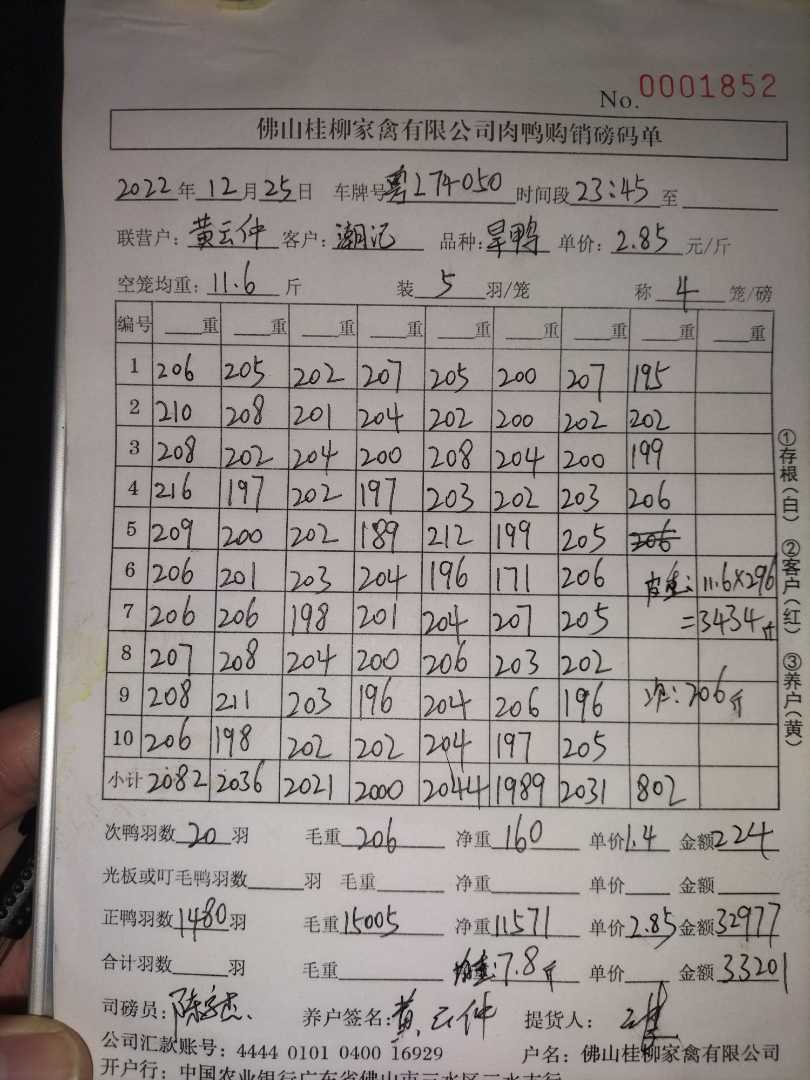 No. 0001852
佛山桂柳家禽有限公司肉鸭购销磅码单
2022年12月25日 车牌号粤L74050 时间段23:45至
联营户:黄云仲 客户:潮记 品种:旱鸭 单价:2.85元/斤
空笼均重:11.6斤 装5羽/笼 称4笼/磅
编号 重 重 重 重 重 重 重 重 重
1 206 205 202 207 205 200 207 195
2 210 208 201 204 202 200 202 202
3 208 202 204 200 208 204 200 199
4 216 197 202 197 203 202 203 206
5 209 200 202 189 212 199 205 206
6 206 201 203 204 196 171 206 皮重:11.6×296
7 206 206 198 201 204 207 205 =3434斤
8 207 208 204 200 206 203 202
9 208 211 203 196 204 206 196 次:206斤
10 206 198 202 202 204 197 205
小计 2082 2036 2021 2000 2044 1989 2031 802
①存根(白) ②客户(红) ③养户(黄)
次鸭羽数20羽 毛重206 净重160 单价1.4 金额224
光板或叮毛鸭羽数 羽 毛重 净重 单价 金额
正鸭羽数1480羽 毛重15005 净重11571 单价2.85 金额32977
合计羽数 羽 毛重 均重:7.8斤 单价 金额33201
司磅员: 养户签名:黄云仲 提货人:
公司汇款账号:4444 0101 0400 16929 户名:佛山桂柳家禽有限公司
开户行:中国农业银行广东省佛山市三水区三水支行